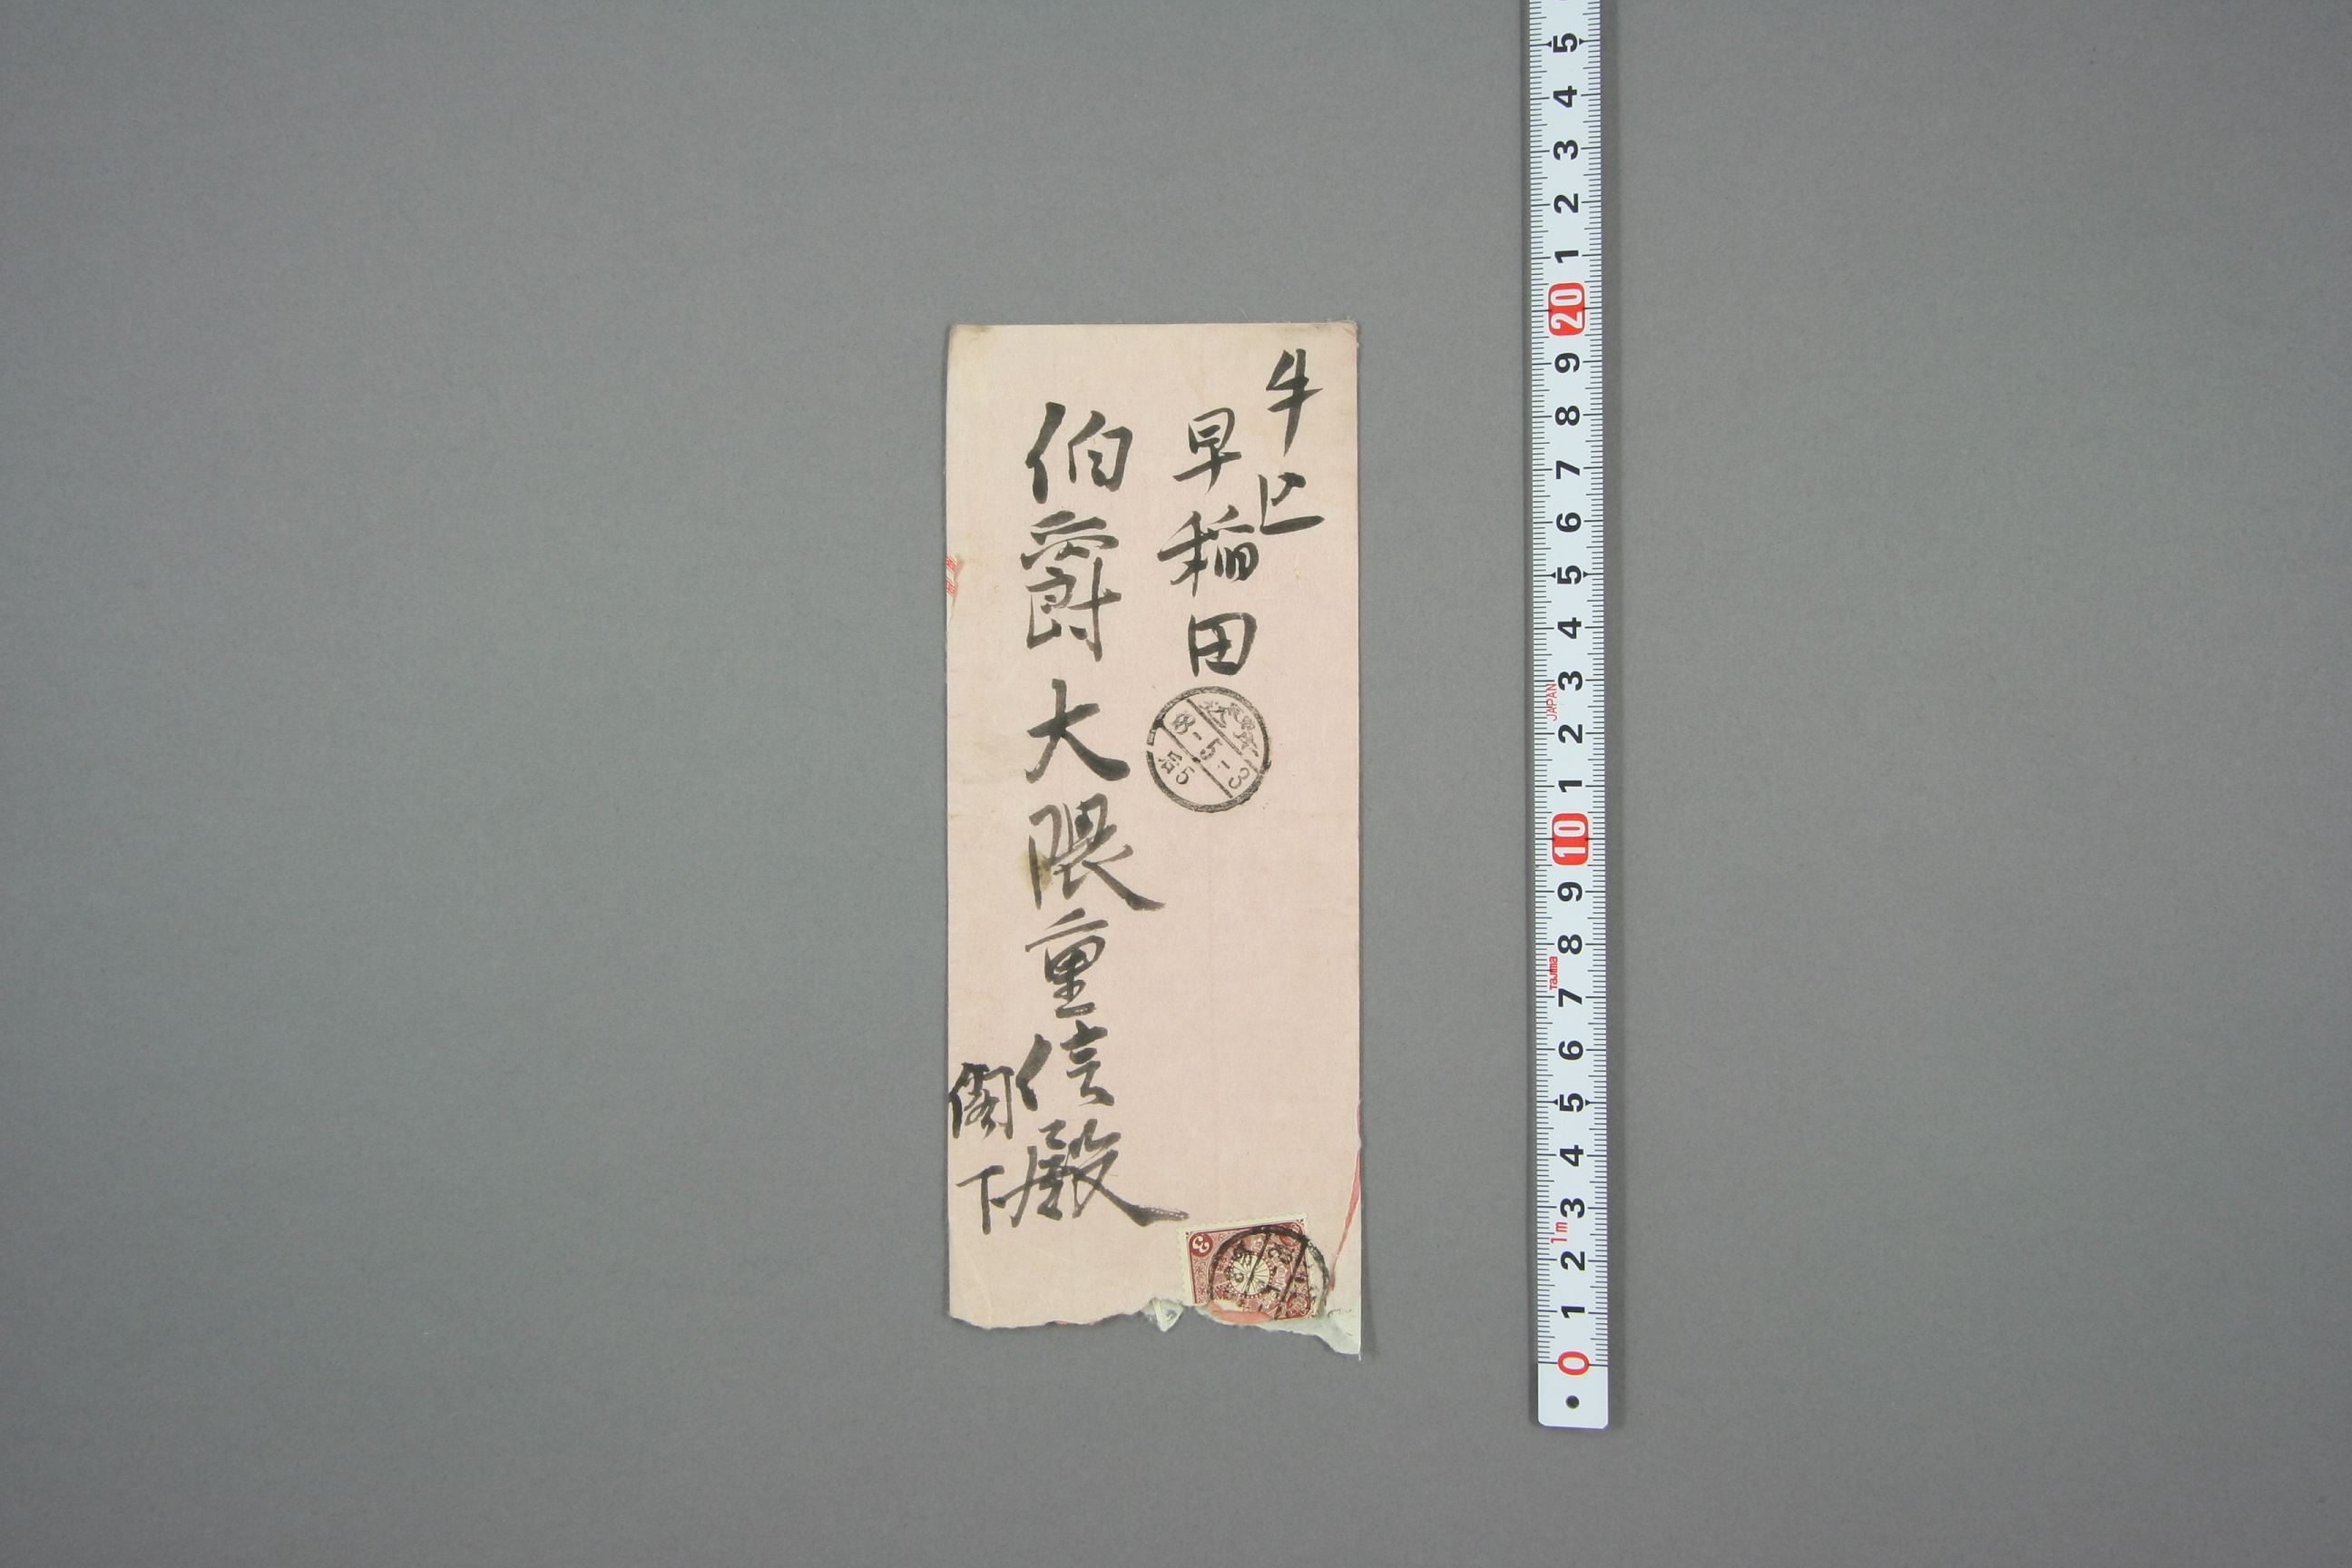 牛込
早稲田
伯爵大隈重信殿
閣下
8-5-3
后5
3
5
4
3
2
1
20
9
8
7
6
5
4
3
2
1
10
9
8
7
6
5
4
3
2
1
0
JAPAN
Tajima
1m